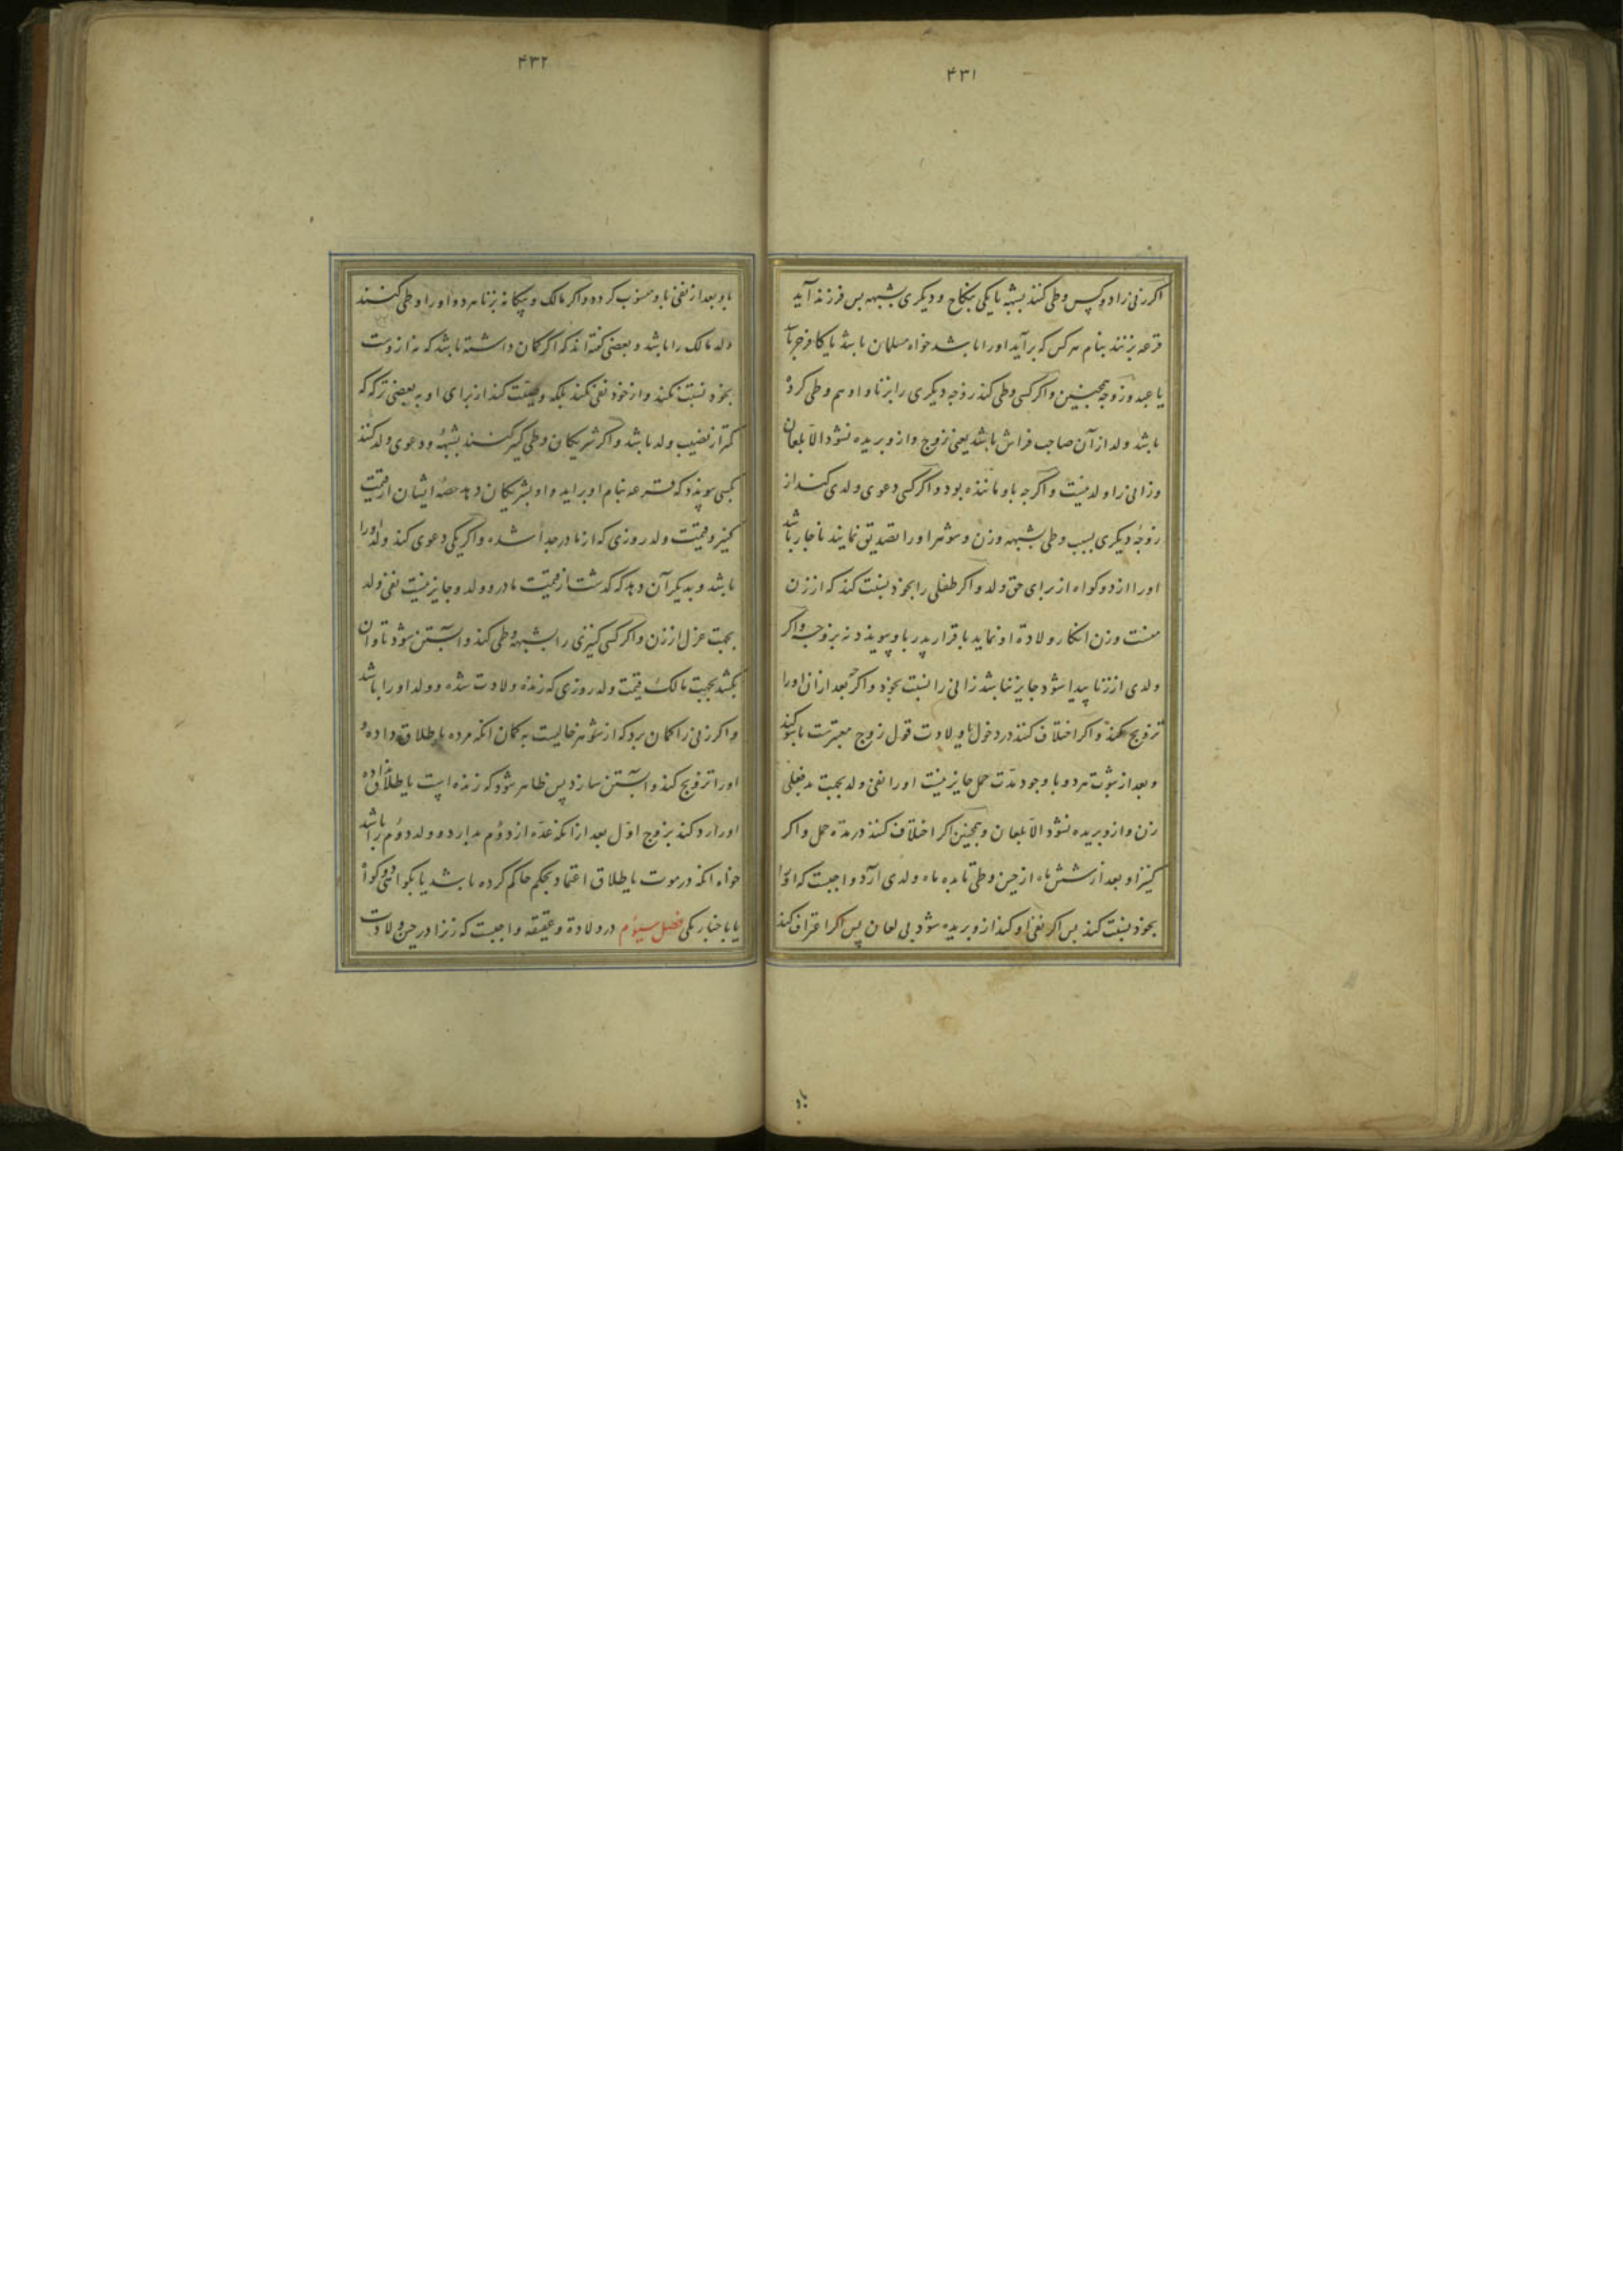 ۴۳۱
اکر زنی را دو کس وطی کنند بشبهه یا یکی بنکاح و دیکری بشبهه پس فرزند آید
قرعه بزنند بنام هر کس که برآید او را باشد خواه مسلمان باشد یا کافر حر یا
یا عبد و زوجه همچنین و اکر کسی وطی کند زوجه دیکری را بزنا و او هم وطی کرده
باشد ولد از آن صاحب فراش باشد یعنی زوج و ازو بریده نشود الا بلعان
و زانی را ولد نیست و اکرچه باو ماننده بود و اکر کسی دعوی ولدی کند از
زوجه دیکری بسبب وطی بشبهه و زن و شوهر او را تصدیق نمایند ناچار باشد
او را از دو کواه از برای حق ولد و اکر طفلی را بخود نسبت کند که از زن
منست و زن انکار ولادة او نماید باقرار پدر باو پیوندد نه بزوجه و اکر
ولدی از زنا پیدا شود جایز نباشد زانی را نسبت بخود و اکرچه بعد از آن او را
تزویج کند و اکر اختلاف کنند در دخول یا ولادت قول زوج معتبرست با سوکند
و بعد از ثبوت هر دو با وجود مدت حمل جایز نیست او را نفی ولد بجهت بدفعلی
زن و ازو بریده نشود الا بلعان و همچنین اکر اختلاف کنند در مدة حمل و اکر
کنیز او بعد از شش ماه از حین وطی تا بده ماه ولدی آرد واجبست که او را
بخود نسبت کند پس اکر نفی او کند ازو بریده شود بی لعان پس اکر اعتراف کند
۴۳۲
باو بعد از نفی باو منسوب کردد و اکر مالک و بیکانه بزنا هر دو او را وطی کنند
ولد مالک را باشد و بعضی کفته‌اند که اکر کمان داشته باشد که نه ازوست
بخود نسبت نکند و از خود نفی نکند بلکه وصیت کند از برای او به بعضی ترکه که
کمتر از نصیب ولد باشد و اکر شریکان وطی کنیز کنند بشبهه و دعوی ولد کنند
بکسی پیوندد که قرعه بنام او برآید و او بشریکان دهد حصه ایشان از قیمت
کنیز و قیمت ولد روزی که از مادر جدا شده و اکر یکی دعوی کند ولد او را
باشد و بدیکر آن دهد که کذشت از قیمت مادر و ولد و جایز نیست نفی ولد
بجهت عزل از زن و اکر کسی کنیزی را بشبهه وطی کند و آبستن شود تاوان
بکشد بجهت مالک قیمت ولد روزی که زنده ولادت شده و ولد او را باشد
و اکر زنی را کمان برد که از شوهر خالیست به کمان انکه مرده یا طلاق داده و
او را تزویج کند و آبستن سازد پس ظاهر شود که زنده است یا طلاق نداده
او را رد کند بزوج اول بعد از انکه عده از دوم بدارد و ولد دوم را باشد
خواه انکه در موت یا طلاق اعتماد بحکم حاکم کرده باشد یا بکواهی دو کواه
یا باخبار یکی فصل سیوم در ولادة و عقیقه واجبست که زن را در حین ولادت